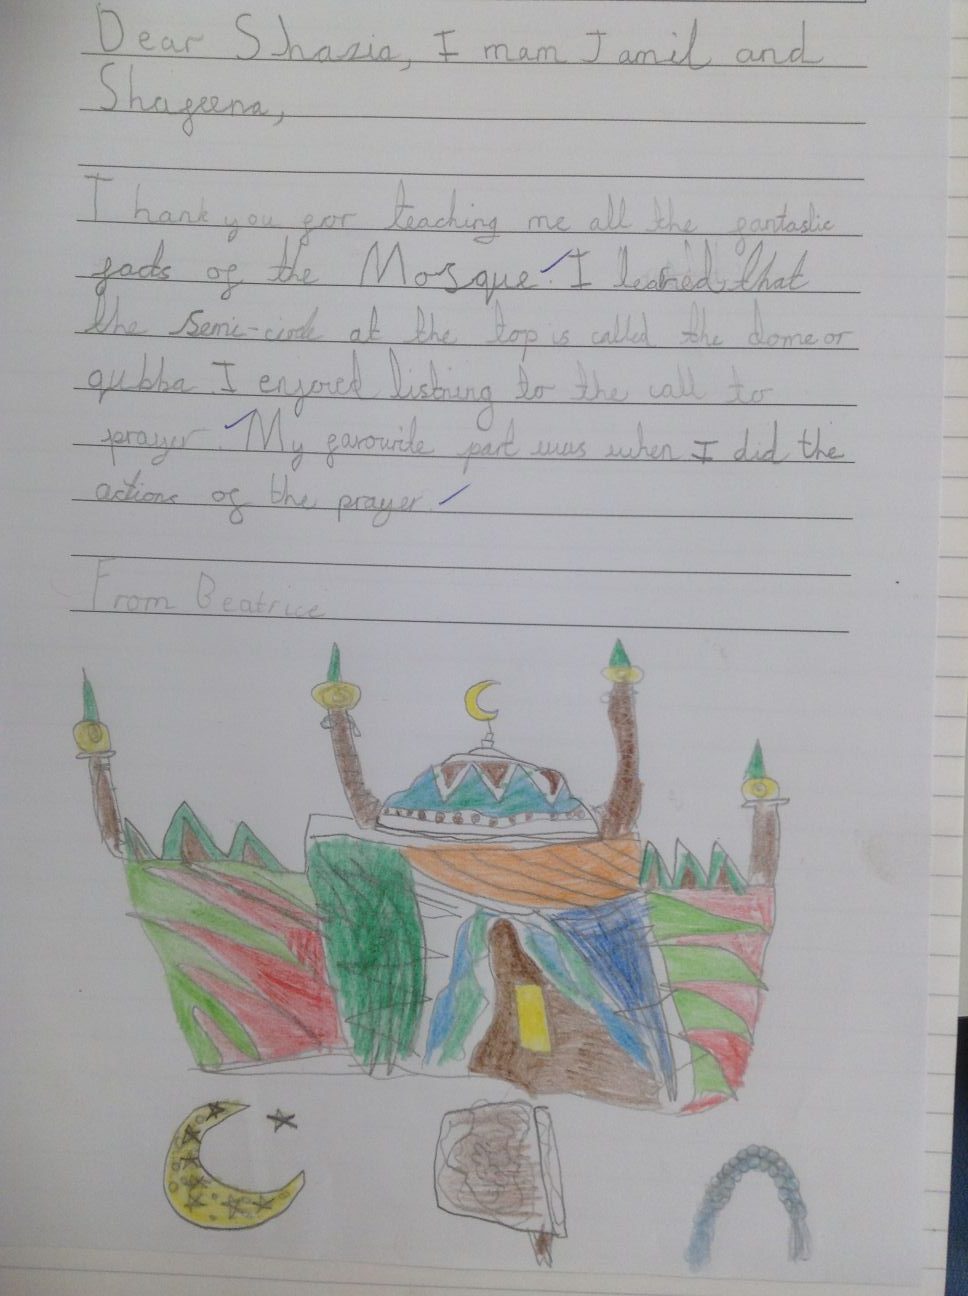 Dear Shazia, I mam Jamil and
Shageena,
Thank you for teaching me all the fantastic
facts of the Mosque. I learned that
the semi-circle at the top is called the dome or
qubba. I enjoyed listning to the call to
prayer. My farowite part was when I did the
actions of the prayer.
From Beatrice